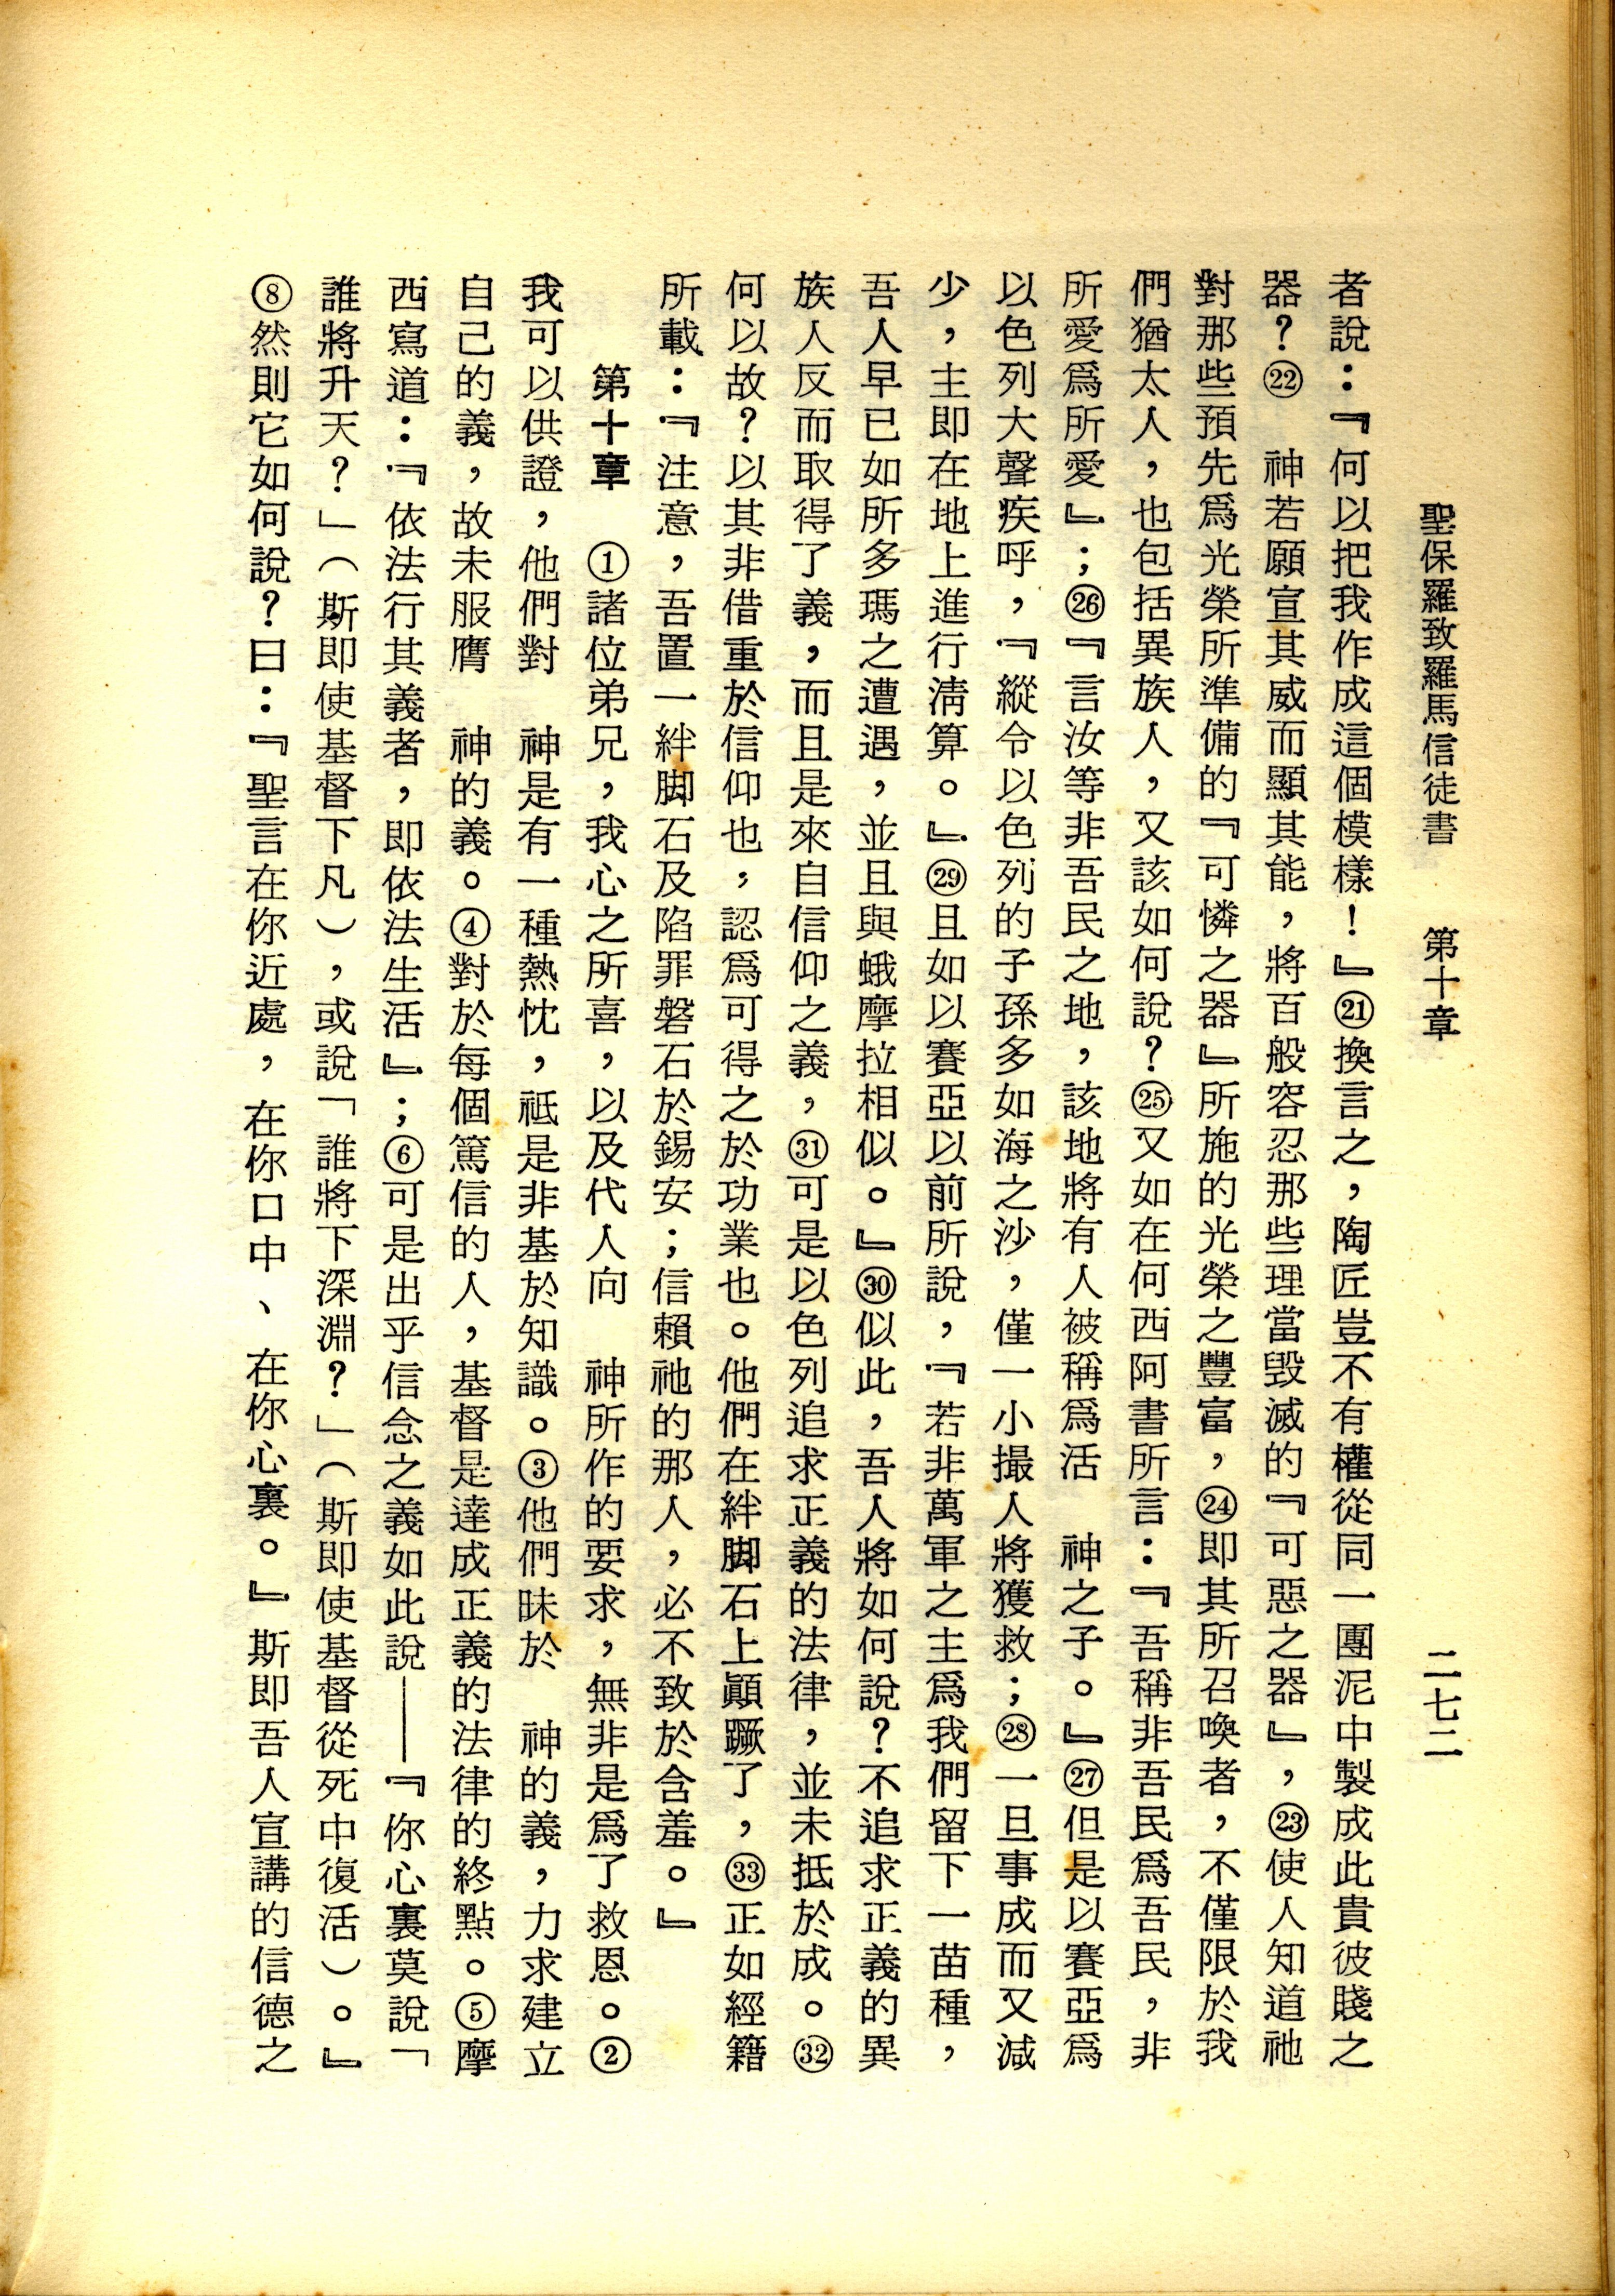 聖保羅致羅馬信徒書　第十章　二七二
者說：『何以把我作成這個模樣！』㉑換言之，陶匠豈不有權從同一團泥中製成此貴彼賤之
器？㉒　神若願宣其威而顯其能，將百般容忍那些理當毀滅的『可惡之器』，㉓使人知道祂
對那些預先爲光榮所準備的『可憐之器』所施的光榮之豐富，㉔即其所召喚者，不僅限於我
們猶太人，也包括異族人，又該如何說？㉕又如在何西阿書所言：『吾稱非吾民爲吾民，非
所愛爲所愛』；㉖『言汝等非吾民之地，該地將有人被稱爲活　神之子。』㉗但是以賽亞爲
以色列大聲疾呼，『縱令以色列的子孫多如海之沙，僅一小撮人將獲救；㉘一旦事成而又減
少，主即在地上進行淸算。』㉙且如以賽亞以前所說，『若非萬軍之主爲我們留下一苗種，
吾人早已如所多瑪之遭遇，並且與蛾摩拉相似。』㉚似此，吾人將如何說？不追求正義的異
族人反而取得了義，而且是來自信仰之義，㉛可是以色列追求正義的法律，並未抵於成。㉜
何以故？以其非借重於信仰也，認爲可得之於功業也。他們在絆脚石上顚蹶了，㉝正如經籍
所載：『注意，吾置一絆脚石及陷罪磐石於錫安；信賴祂的那人，必不致於含羞。』
第十章　①諸位弟兄，我心之所喜，以及代人向　神所作的要求，無非是爲了救恩。②
我可以供證，他們對　神是有一種熱忱，祗是非基於知識。③他們昧於　神的義，力求建立
自己的義，故未服膺　神的義。④對於每個篤信的人，基督是達成正義的法律的終點。⑤摩
西寫道：『依法行其義者，即依法生活』；⑥可是出乎信念之義如此說——『你心裏莫說「
誰將升天？」（斯即使基督下凡），或說「誰將下深淵？」（斯即使基督從死中復活）。』
⑧然則它如何說？曰：『聖言在你近處，在你口中、在你心裏。』斯即吾人宣講的信德之